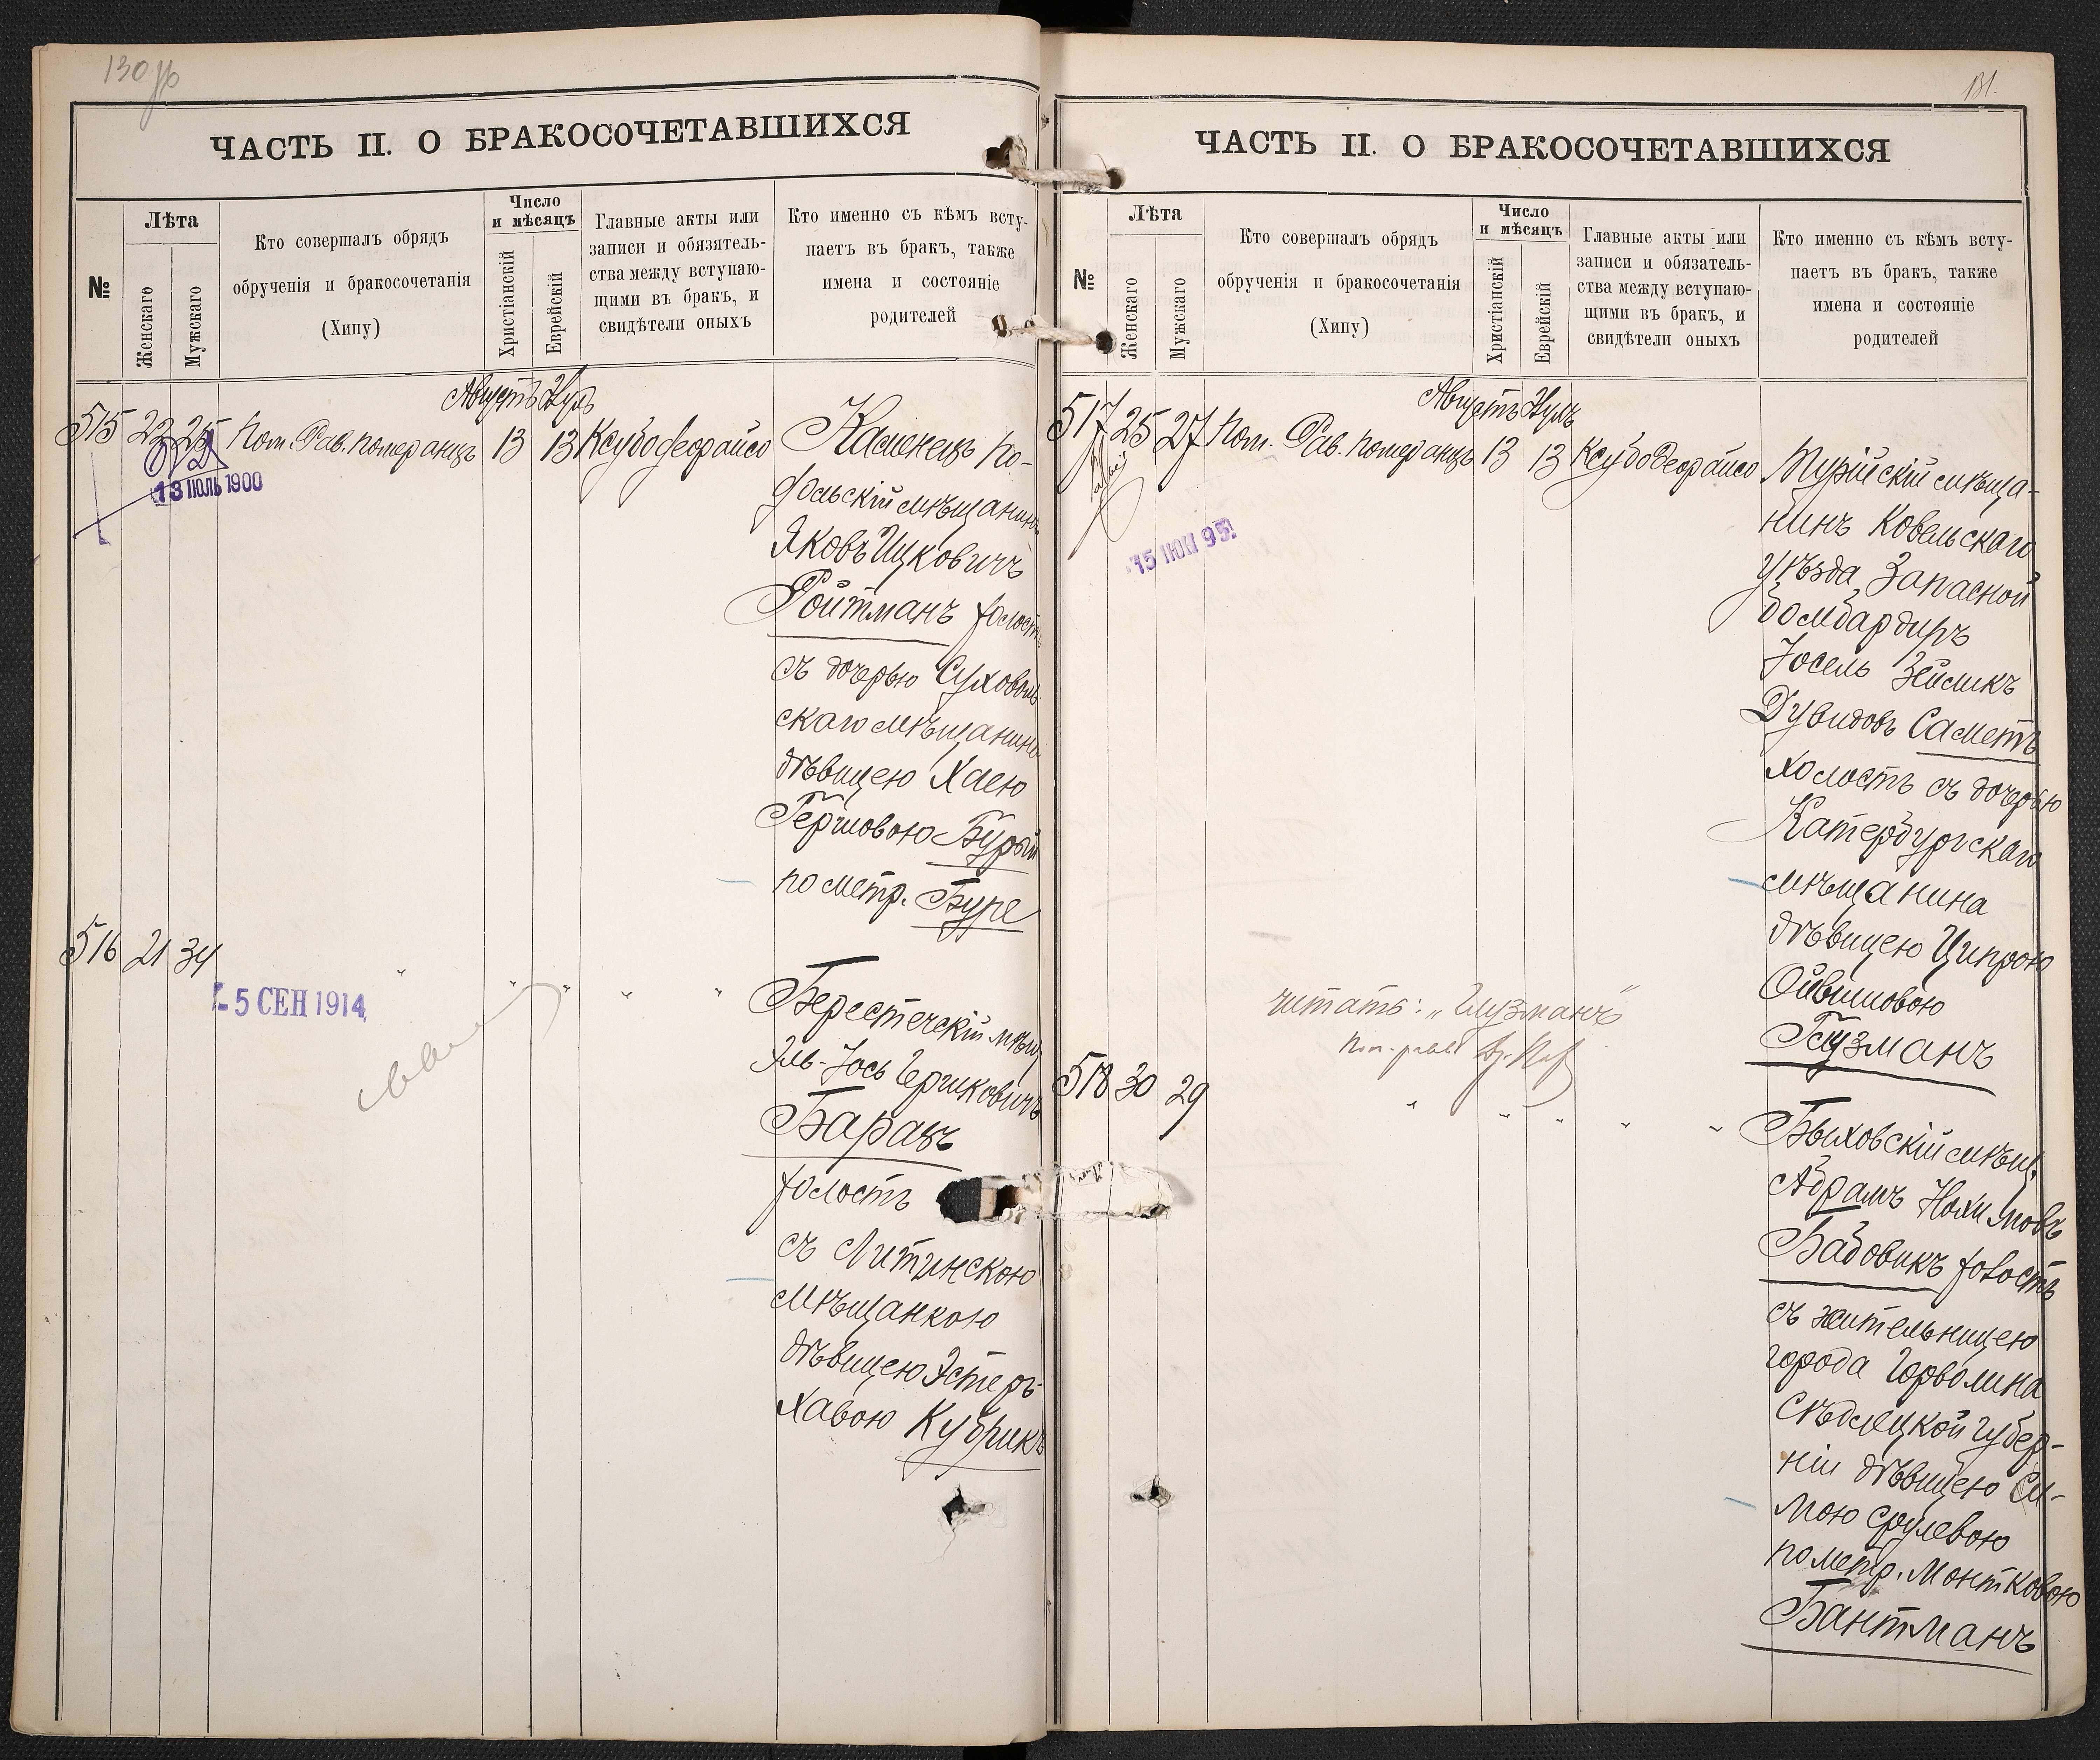 130 об
ЧАСТЬ II. О БРАКОСОЧЕТАВШИХСЯ
№
Лѣта
Женскаго
Мужскаго
Кто совершалъ обрядъ
обрученія и бракосочетанія
(Хипу)
Число
и мѣсяцъ
Христіанскій
Еврейскій
Главные акты или
записи и обязятель-
ства между вступаю-
щими въ бракъ, и
свидѣтели оныхъ
Кто именно съ кѣмъ всту-
паетъ въ бракъ, также
имена и состояніе
родителей
Августъ
515 22 25 Пом. Рав. Померанцъ 13 13 Ксубо деорайсо
13 ІЮЛЬ 1900
Каменецъ По-
дольскій мѣщанинъ
Яковъ Ицковичъ
Ройтманъ холостъ
съ дочерью Суховоль-
скаго мѣщанина
дѣвицею Хаею
Гершовою Бурый
по метр. Буре
516 21 34 " " " " "
- 5 СЕН 1914
Берестечскій мѣщ.
Эль-Іось Гершковичъ
Баразъ
холостъ
съ Литинскою
мѣщанкою
дѣвицею Эстеръ-
Хавою Кубрикъ
131.
ЧАСТЬ II. О БРАКОСОЧЕТАВШИХСЯ
№
Лѣта
Женскаго
Мужскаго
Кто совершалъ обрядъ
обрученія и бракосочетанія
(Хипу)
Число
и мѣсяцъ
Христіанскій
Еврейскій
Главные акты или
записи и обязатель-
ства между вступаю-
щими въ бракъ, и
свидѣтели оныхъ
Кто именно съ кѣмъ всту-
паетъ въ бракъ, также
имена и состояніе
родителей
Августъ
517 25 27 Пом. Рав. Померанцъ 13 13 Ксубо деорайсо
Турійскій мѣща-
нинъ Ковельскаго
уѣзда, Запасной
бомбардиръ
Іосель Зейликъ
Дувидовъ Саметъ
холостъ съ дочерью
Катербургскаго
мѣщанина
дѣвицею Ципрою
Ойвишовою
Гузманъ
читать: „Глузманъ"
518 30 29 " " " " "
Быховскій мѣщ.
Абрамъ Нохимовъ
Бабовикъ холостъ
съ жительницею
города Горволина
Сѣдлецкой губер-
ніи дѣвицею Си-
мою Срулевою
по метр. Монтковою
Бантманъ